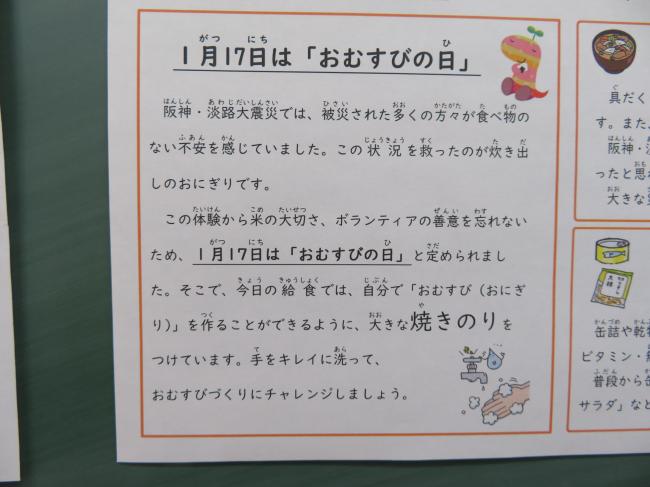 1月17日は「おむすびの日」
阪神・淡路大震災では、被災された多くの方々が食べ物の
ない不安を感じていました。この状況を救ったのが炊き出
しのおにぎりです。
この体験から米の大切さ、ボランティアの善意を忘れない
ため、1月17日は「おむすびの日」と定められまし
た。そこで、今日の給食では、自分で「おむすび（おにぎ
り）」を作ることができるように、大きな焼きのりを
つけています。手をキレイに洗って、
おむすびづくりにチャレンジしましょう。
具だく
す。また、
阪神・淡
ったと思
大きな
缶詰や乾物
ビタミン・
普段から缶
サラダ」など